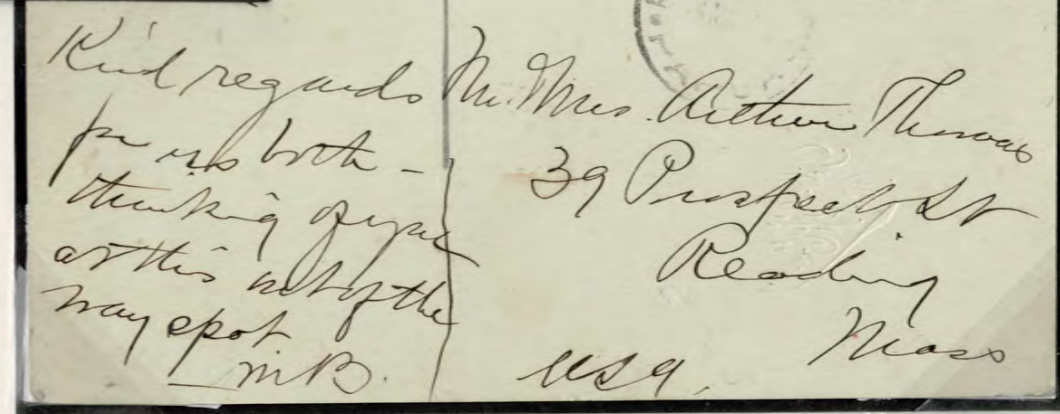 Kind regards
for us both -
thinking of you
at this out of the
way spot
M.B.
Mr. Mrs. Arthur Thomas
39 Prospect St
Reading
Mass
USA.